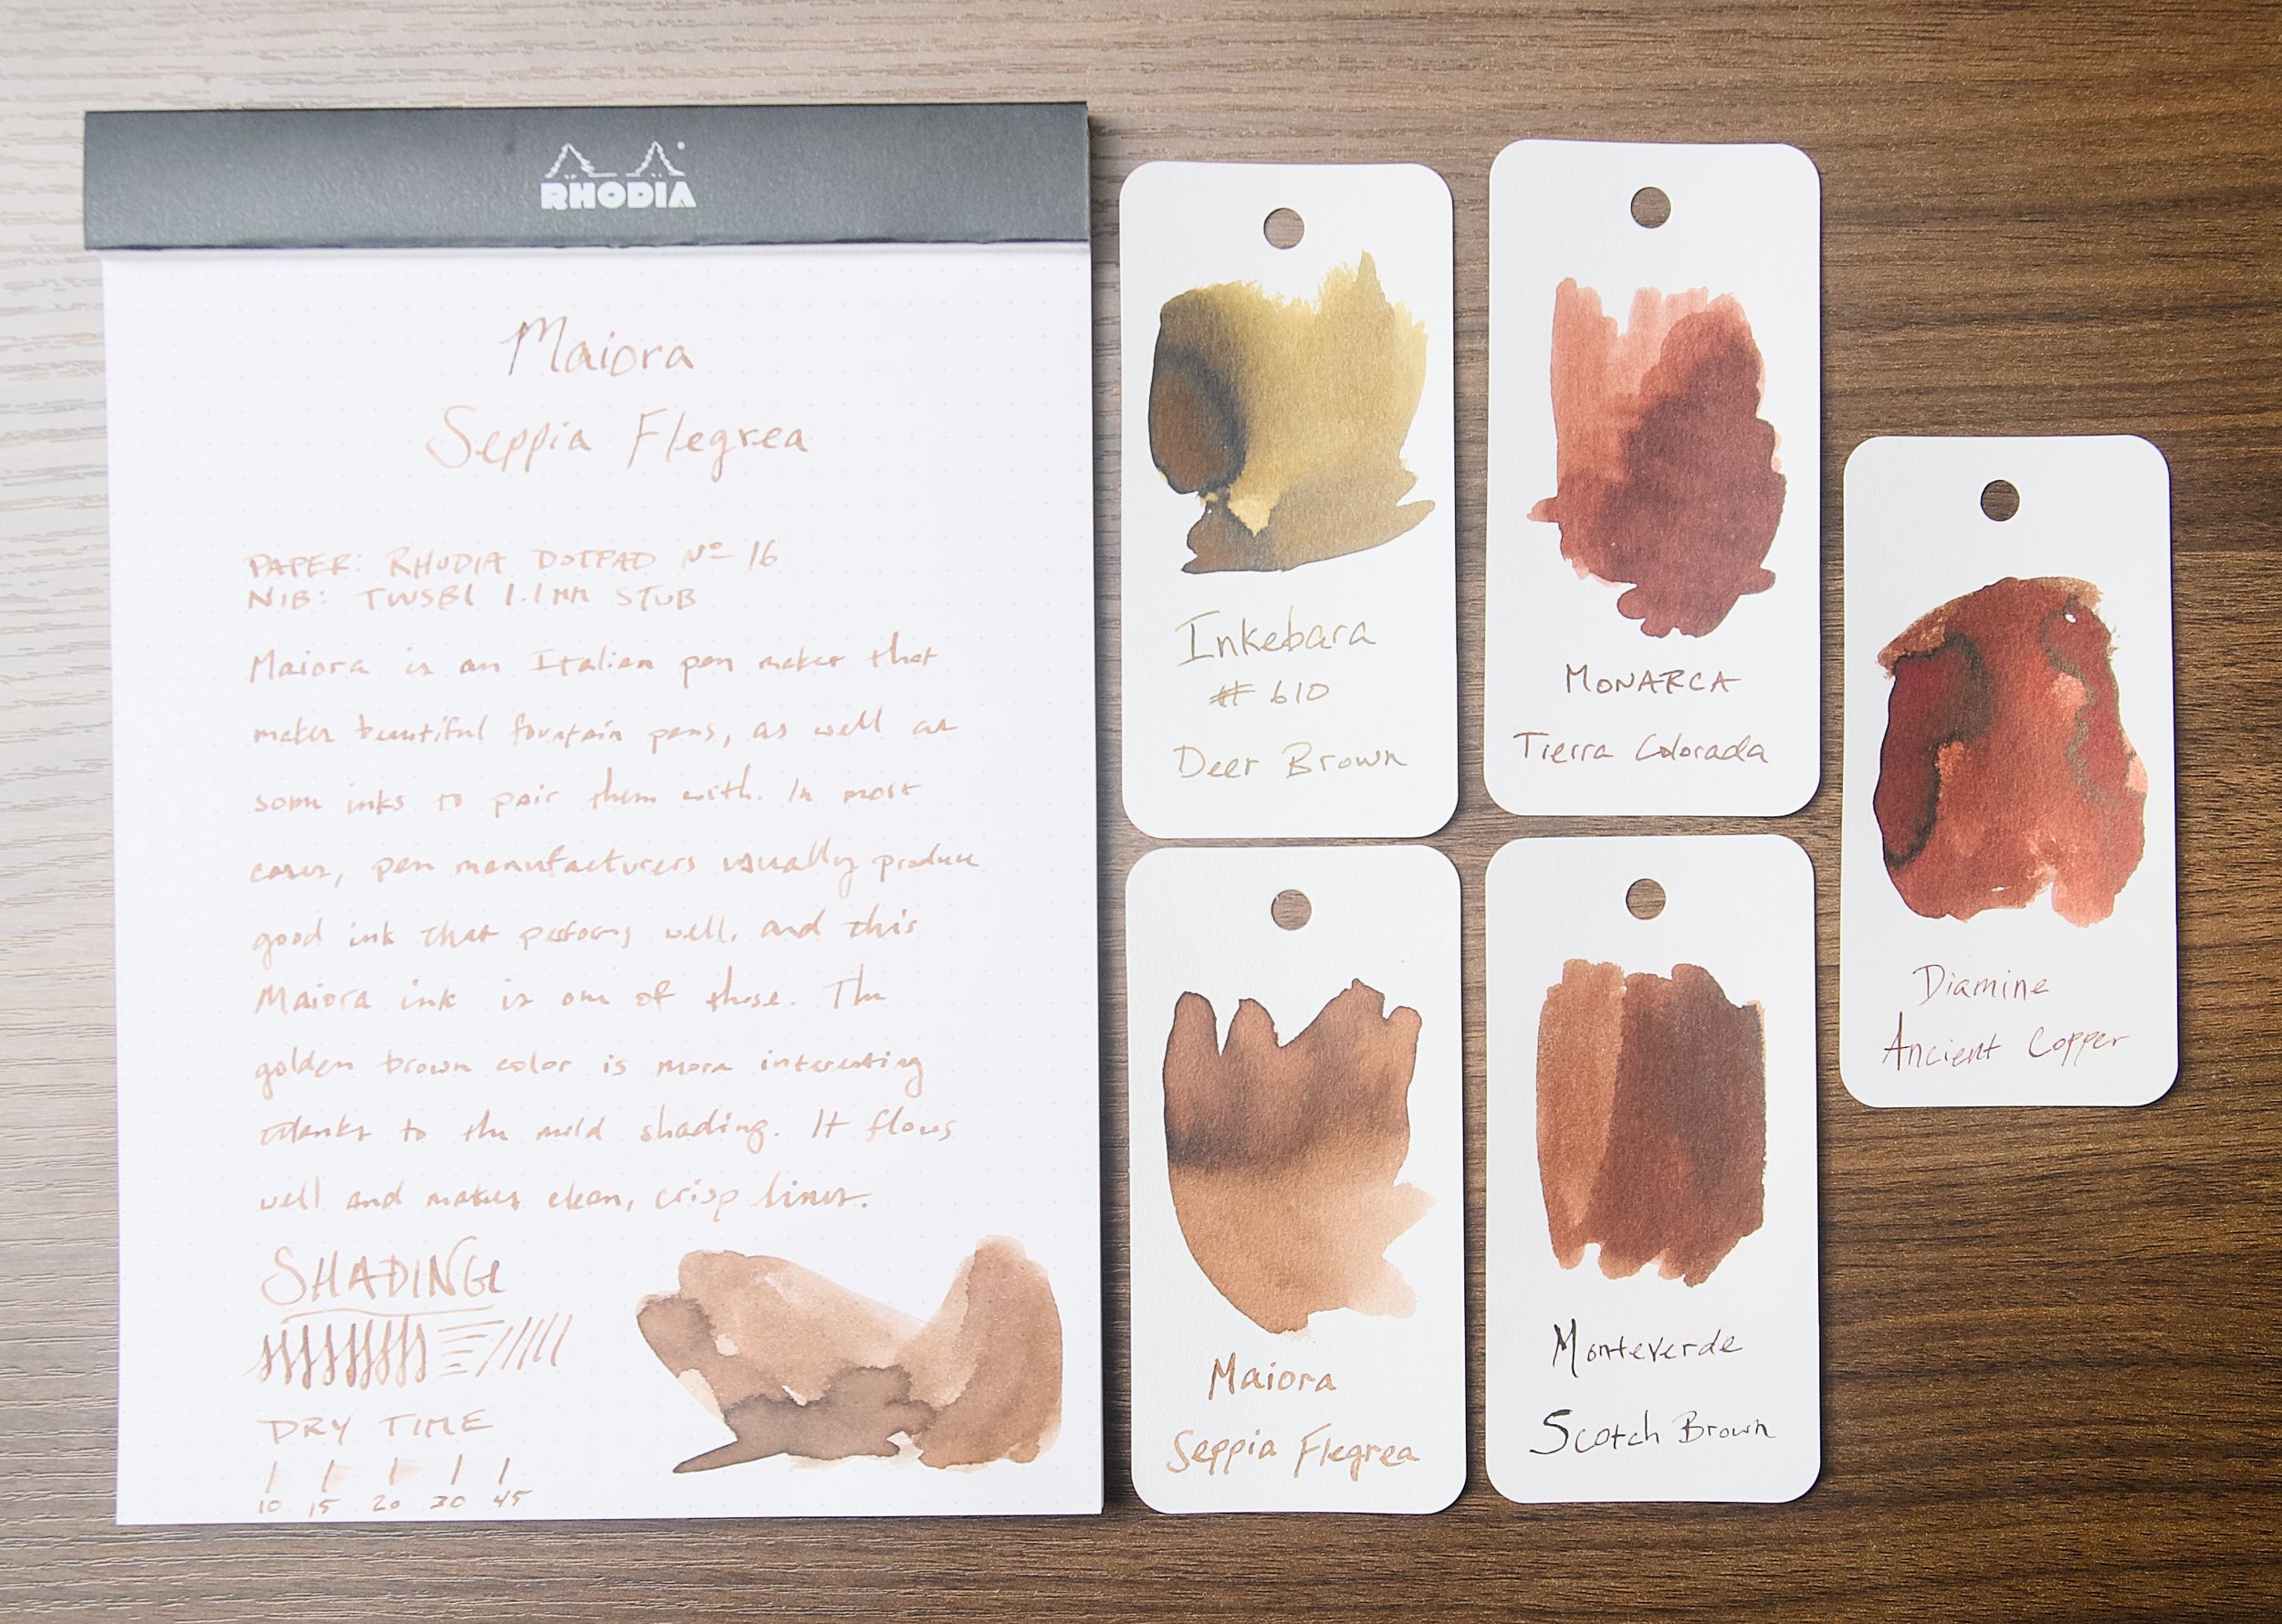 RHODIA
Maiora
Seppia Flegrea
PAPER: RHODIA DOTPAD Nº 16
NIB: TWSBI 1.1mm STUB
Maiora is an Italian pen maker that
makes beautiful fountain pens, as well as
some inks to pair them with. In most
cases, pen manufacturers usually produce
good ink that performs well, and this
Maiora ink is one of those. The
golden brown color is more interesting
thanks to the mild shading. It flows
well and makes clean, crisp lines.
SHADING
DRY TIME
10 15 20 30 45
Inkebara
# 610
Deer Brown
MONARCA
Tierra Colorada
Maiora
Seppia Flegrea
Monteverde
Scotch Brown
Diamine
Ancient Copper